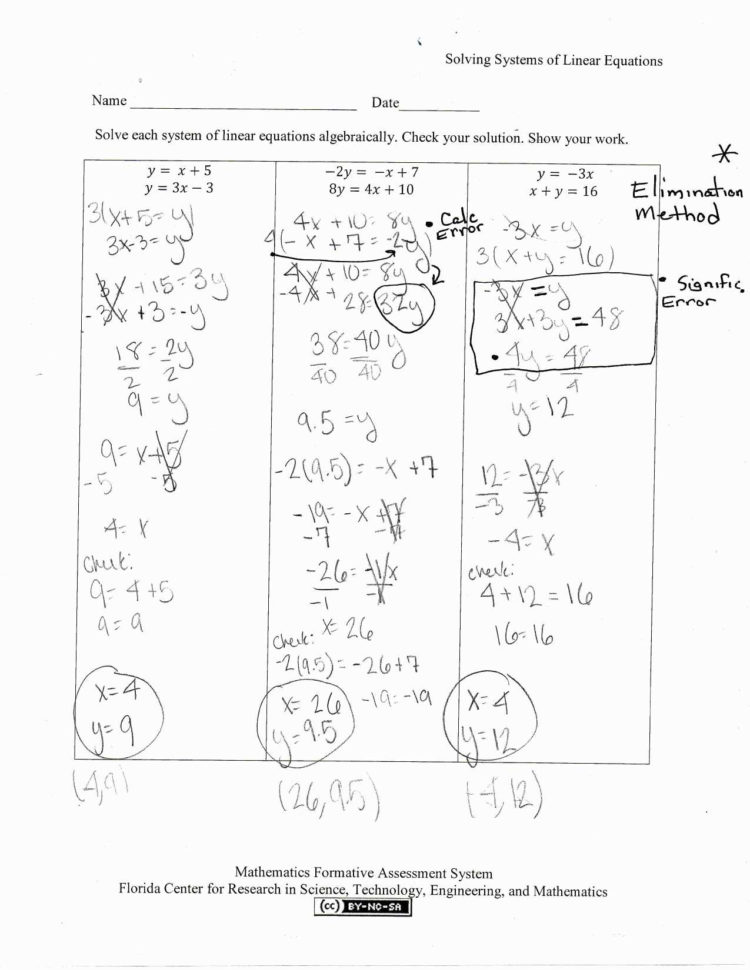 Solving Systems of Linear Equations
Name Date
Solve each system of linear equations algebraically. Check your solution. Show your work.
y = x + 5
y = 3x − 3
3(x+5=y)
3x-3=y
3x+15=3y
-3x+3=-y
18=2y
2 2
9=y
9=x+5
-5 -5
4=x
Check:
9=4+5
9=9
x=4
y=9
(4,9)
−2y = −x + 7
8y = 4x + 10
4x+10=8y
4(-x+7=-2y)
• Calc
Error
4x+10=8y
-4x+28=32y
38=40y
40 40
9.5=y
-2(9.5)=-x+7
-19=-x+7
-7 -7
-26=-1x
-1 -1
x=26
Check:
-2(9.5)=-26+7
-19=-19
x=26
y=9.5
(26,9.5)
y = −3x
x + y = 16
-3x=y
3(x+y=16)
-3x=y
3x+3y=48
• 4y=48
4 4
y=12
12=-3x
-3 -3
-4=x
check:
4+12=16
16=16
x=4
y=12
(-4,12)
*
Elimination
Method
• Signific.
Error
Mathematics Formative Assessment System
Florida Center for Research in Science, Technology, Engineering, and Mathematics
(cc) BY-NC-SA